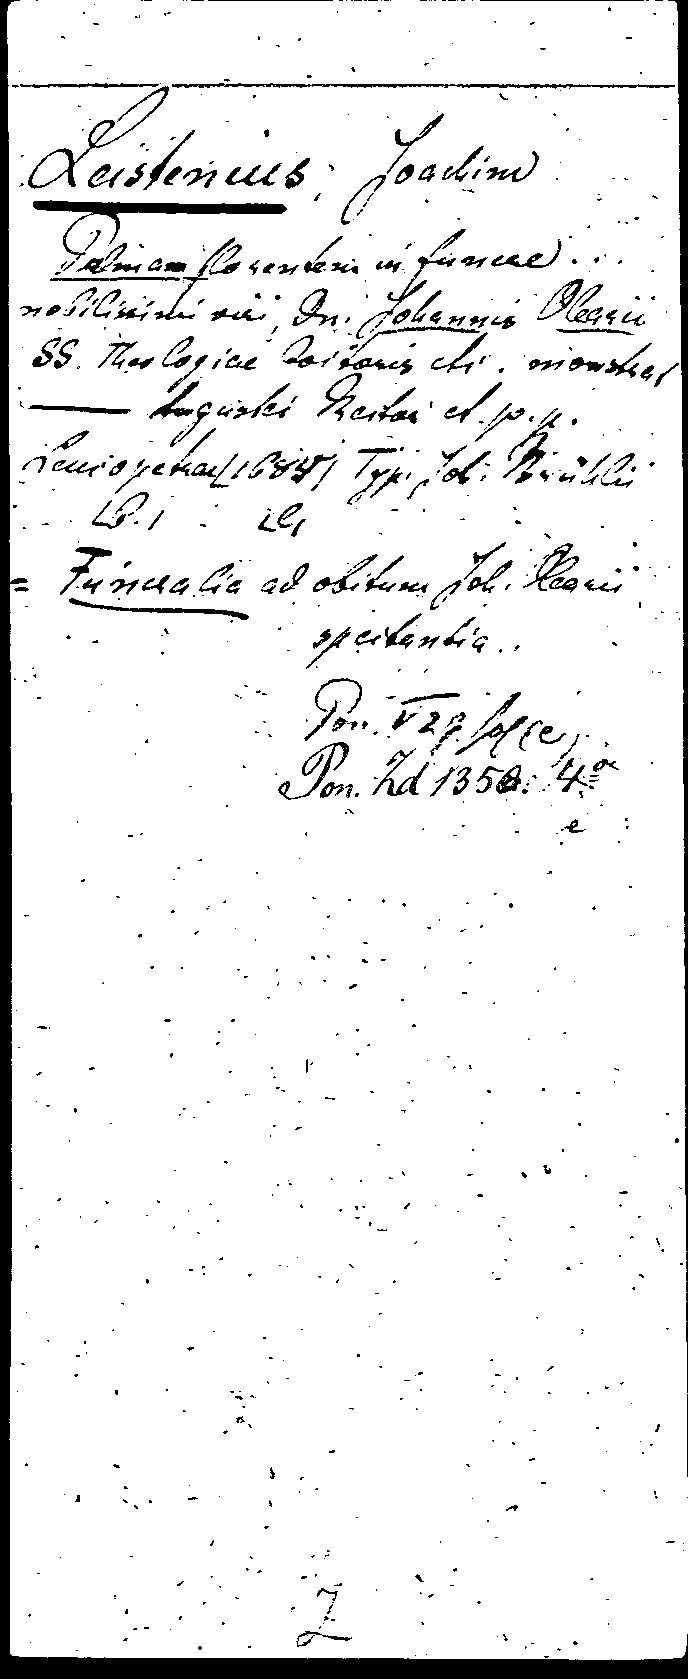 Leistenius, Joachim
Palmam florentem in funere ...
nobilissimi viri, Dn. Johannis Olearii
SS. Theologiae Doctoris etc. monstrat
——— Augustei Rector et p. p.
Leucopetrae [1684] Typ. Joh. Brühlii
= Funeralia ad obitum Joh. Olearii
spectantia..
Pon. Zd 1358. 4°
e
Z